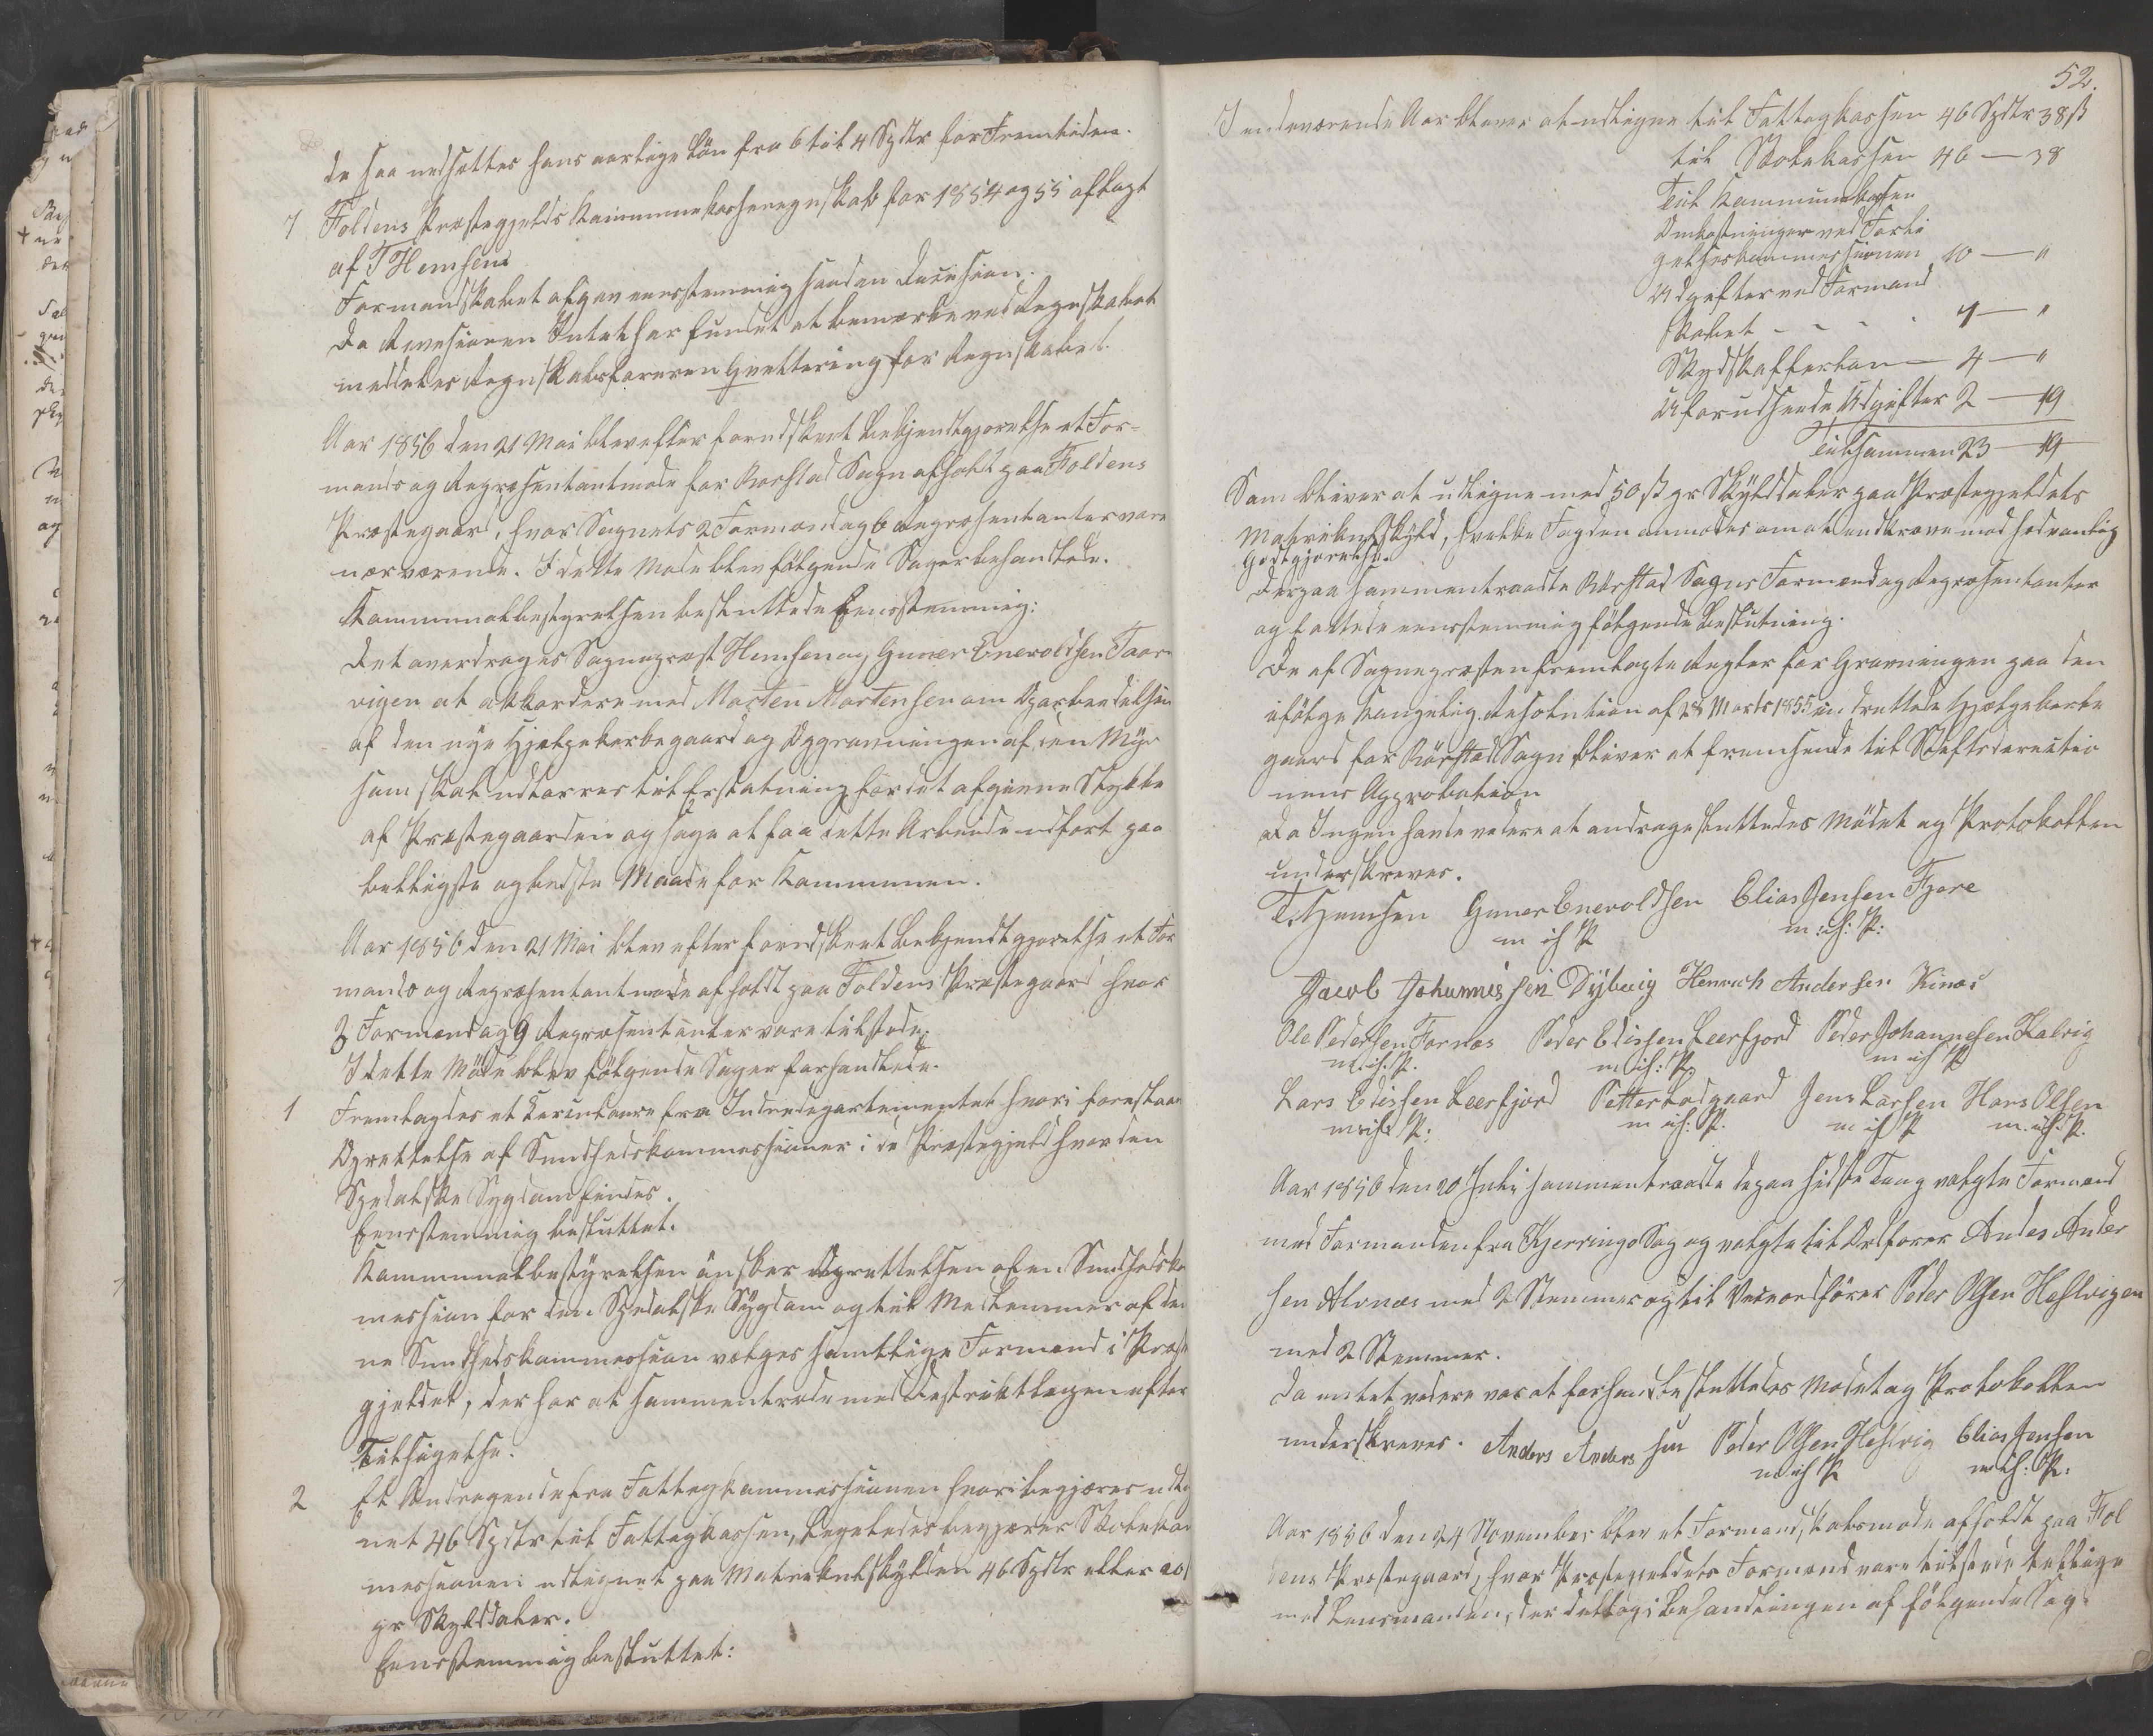 da saa nedsættes hans aarlige Løn fra 6 til 4 Spdlr for Fremtiden.
7 Foldens Præstegjelds Kommunekasseregnskab for 1854 og 55 aflagt
af T Hemsen
Formandskabet afgav eensstemmig saadan Decision.
Da Revisionen Intet har fundet at bemærke ved Regnskabet
meddeles Regnskabsføreren Qvittering for Regnskabet.
Aar 1856 den 21 Mai blev efter forudskeet Bekjendtgjørelse et For-
mands og Repræsentantmøde for Rørstad Sogn afholdt paa Foldens
Præstegaard, hvor Sognets 2 Formænd og 6 Repræsentanter vare
nærværende. I dette Møde blev følgende Sager behandlede.
Kommunalbestyrelsen besluttede Eensstemmig:
Det overdrages Sognepræst Hemsen og Gunner Enevoldsen Taar
vigen at akkordere med Morten Mortensen om Oparbeidelsen
af den nye Hjelpekirkegaard og Opgravningen af den Myr
som skal udtørres til Erstatning for det afgivne Stykke
af Præstegaarden og søge at faa dette Arbeide udført paa
billigste og bedste Maade for Kommunen.
Aar 1856 den 21 Mai blev efter forudskeet Bekjendtgjørelse et For
mands og Repræsentantmøde afholdt paa Foldens Præstegaard hvor
3 Formænd og 9 Repræsentanter vare tilstede.
I dette Møde blev følgende Sager forhandlede.
1 Fremlagdes et Circulaire fra Indredepartementet hvori foreslaaes
Oprettelse af Sundhedskommissioner i de Præstegjeld hvor den
Spedalske Sygdom findes.
Eensstemmig besluttet.
Kommunalbestyrelsen ønsker Oprettelsen af en Sundhedsko
mission for den Spedalske Sygdom og til Medlemmer af den
ne Sundhedskommission vælges samtlige Formænd i Præste
gjeldet, der har at sammentræde med Distriktlægen efter
Tilsigelse.
2 Et Andragende fra Fattigkommissionen hvori begjæres udlig
net 46 Spdlr til Fattigkassen, Ligeledes begjærer Skolekom
missionen udlignet paa Matrikulskylden 46 Spdlr eller 20 ß
pr Skylddaler.
Eensstemmig besluttet:
52.
I indeværende Aar bliver at udligne til Fattigkassen 46 Spdlr 38 ß
til Skolekassen 46 — 38
Til Kommunekassen
Omkostninger ved Forli
gelseskommissionen 10 — "
Udgifter ved Formand
skabet - - - - 7 — "
Skydskafferløn — 4 — "
Uforudseede Udgifter 2 — 19
Tilsammen 23 — 19
Som bliver at udligne med 50 ß pr Skylddaler paa Præstegjeldets
Matrikulskyld, hvilke Fogden anmodes om at inddrive mod sedvanlig
Godtgjørelse.
Derpaa sammentraadte Rørstad Sogns Formænd og Repræsentanter
og fattede eensstemmig følgende Beslutning.
De af Sognepræsten fremlagte Regler for Gravningen paa den
ifølge Kongelig Resolution af 28 Marts 1855 indrettede Hjælpekirke
gaard for Rørstad Sogn bliver at fremsende til Stiftsdirectio
nens Approbation
Da Ingen havde videre at andrage sluttedes Mødet og Protokollen
underskreves.
T. Hemsen Gunner Enevoldsen Elias Jensen Fjære
m i P m: i: P:
Jacob Johannissen Dybvig Henrich Andersen Kinæs
Ole Pedersen Fornæs Peder Edissen Leerfjord Peder Johannesen Kalvig
m. i. P. m. i: P. m i P
Lars Edissen Leerfjord Petter Lodgaard Jens Larsen Hans Olsen
m. i. P. m i: P. m i P m. i. P.
Aar 1856 den 20 Juli sammentraadte de paa sidste Ting valgte Formænd
med Formanden fra Kjerringø Sog og valgte til Ordfører Andes Ander
sen Alvnæs med 2 Stemmer og til Viceordfører Peder Olsen Heslvigen
med 2 Stemmer.
Da intet videre var at forhandle sluttedes Mødet og Protokollen
underskreves. Anders Anders sen Peder Olsen Heslvig Elias Jensen
m i P m i: P:
Aar 1856 den 24 November blev et Formandskabsmøde afholdt paa Fol
dens Præstegaard, hvor Præstegjeldets Formænd vare tilstede tillige
med Lensmanden, der deltog i Behandlingen af følgende Sag.